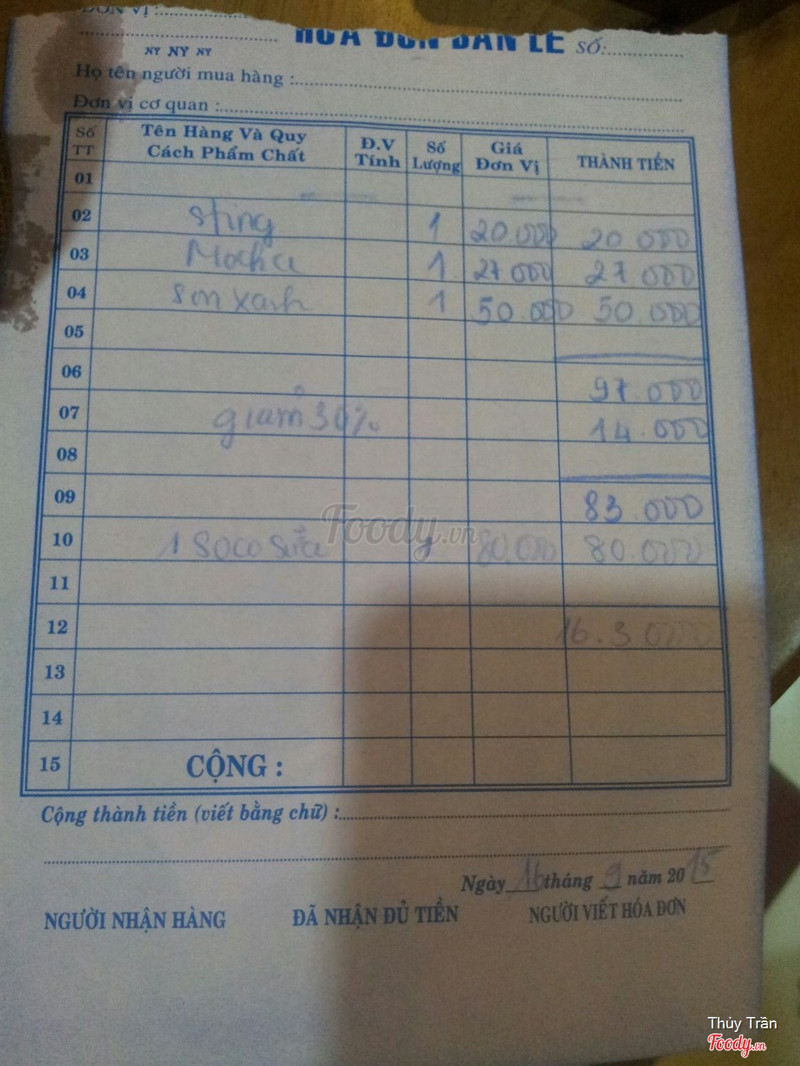 ĐƠN VỊ :
HÓA ĐƠN BÁN LẺ SỐ:
NY NY NY
Họ tên người mua hàng :
Đơn vị cơ quan :
Số TT Tên Hàng Và Quy Cách Phẩm Chất Đ.V Tính Số Lượng Giá Đơn Vị THÀNH TIỀN
01
02 Sting 1 20.000 20 000
03 Mocha 1 27000 27 000
04 Son xanh 1 50.000 50.000
05
06 97.000
07 giảm 30% 14.000
08
09 83.000
10 1 Soco sữa 1 80.000 80.000
11
12 16.3 000
13
14
15 CỘNG :
Cộng thành tiền (viết bằng chữ) :
Ngày 16 tháng 9 năm 2015
NGƯỜI NHẬN HÀNG ĐÃ NHẬN ĐỦ TIỀN NGƯỜI VIẾT HÓA ĐƠN
Foody.vn
Thủy Trần
Foody.vn